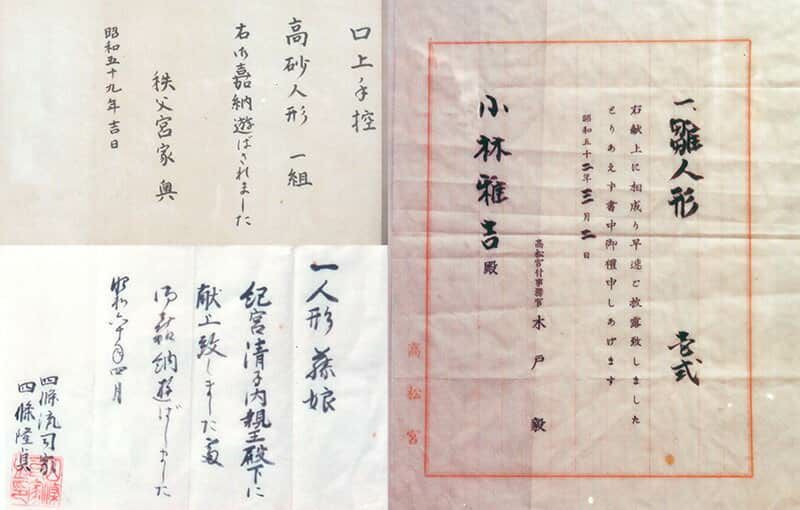 口上手控
高砂人形 一組
右御嘉納遊ばされました
秩父宮家 奥
昭和五十九年吉日
一人形 藤娘
紀宮清子内親王殿下に
献上致しました処
御嘉納遊ばしました
昭和六十年四月
四條流司家
四條隆貞
一、雛人形 壱式
右献上に相成り早速と披露致しました
とりあえず書中御礼申しあげます
昭和五十二年三月二日
高松宮付事務官 木戸 毅
小林雅吉殿
高松宮